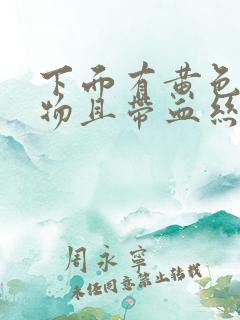 下面有黄色
物且带血丝
周永寧
未经同意禁止转载